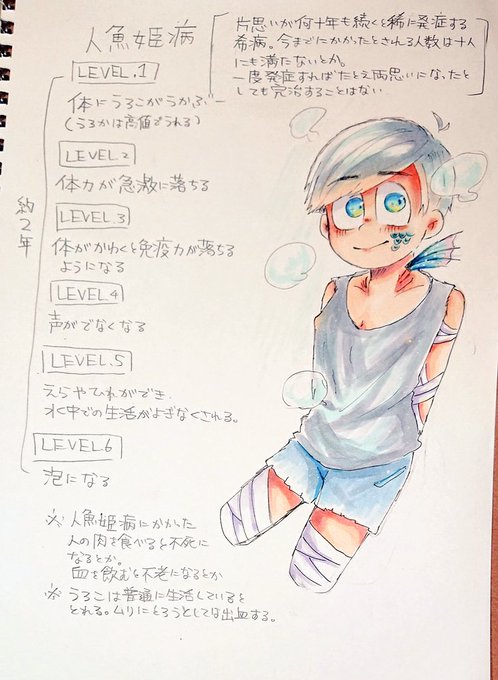 人魚姫病
片思いが何十年も続くと稀に発症する
希病。今までにかかったとされる人数は十人
にも満たないとか。
一度発症すればたとえ両思いになったと
しても完治することはない
約2年
LEVEL.1
体にうろこがうかぶー
(うろこは高値でうれる)
LEVEL.2
体力が急激に落ちる
LEVEL.3
体がかわくと免疫力が落ちる
ようになる
LEVEL.4
声がでなくなる
LEVEL.5
えらやひれができ、
水中での生活がよぎなくされる。
LEVEL6
泡になる
※人魚姫病にかかった
人の肉を食べると不死に
なるとか。
血を飲むと不老になるとか
※うろこは普通に生活していると
とれる。ムリにとろうとしては出血する。